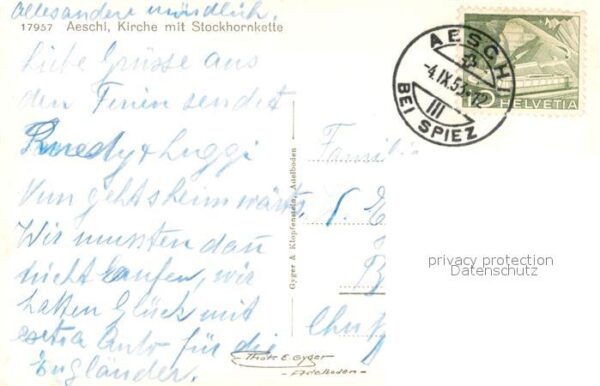 Alles andere mündlich.
17957 Aeschi, Kirche mit Stockhornkette
Liebe Grüsse aus
den Ferien sendet
Ruedy + Luggi
Nun gehts heimwärts.
Wir mussten dan
nicht laufen, wir
hatten Glück mit
extra Auto für die
Engländer.
Gyger & Klopfenstein, Adelboden
Photo E. Gyger
Adelboden
AESCHI
-4.IX.53.-12
III
BEI SPIEZ
HELVETIA
Famili
privacy protection
Datenschutz